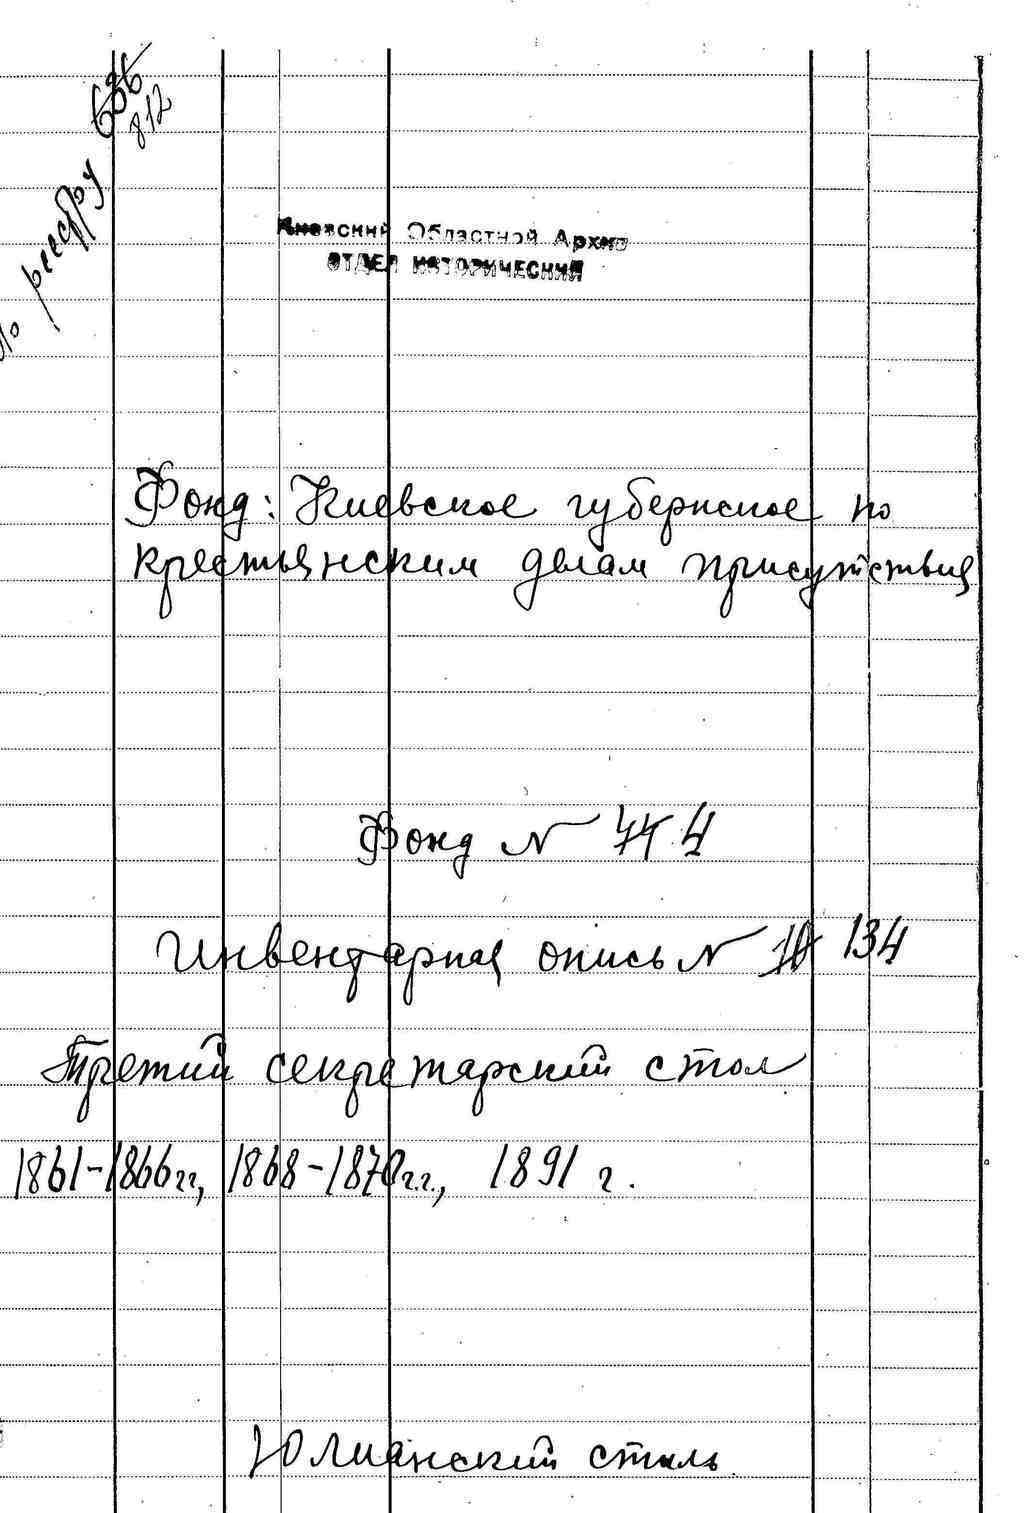 по реестру 636
812
Киевский Областной Архив
ОТДЕЛ ИСТОРИЧЕСКИЙ
Фонд: Киевское губернское по
крестьянским делам присутствия
Фонд N 4
Инвентарная опись N 10 134
Третий секретарский стол
1861-1866 гг, 1868-1870 г.г., 1891 г.
Юлианский стиль